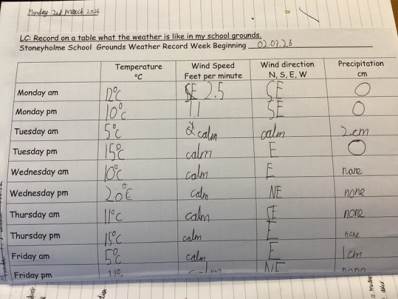 Monday 2nd March 2026
LC: Record on a table what the weather is like in my school grounds.
Stoneyholme School Grounds Weather Record Week Beginning 02.03.26
Temperature °C Wind Speed Feet per minute Wind direction N, S, E, W Precipitation cm
Monday am 12°C 2.5 SE 0
Monday pm 10°C 11 SE 0
Tuesday am 5°C calm calm 2cm
Tuesday pm 15°C calm E 0
Wednesday am 10°C calm E none
Wednesday pm 20°C calm NE none
Thursday am 11°C calm E none
Thursday pm 15°C calm E none
Friday am 5°C calm E 1cm
Friday pm NE none